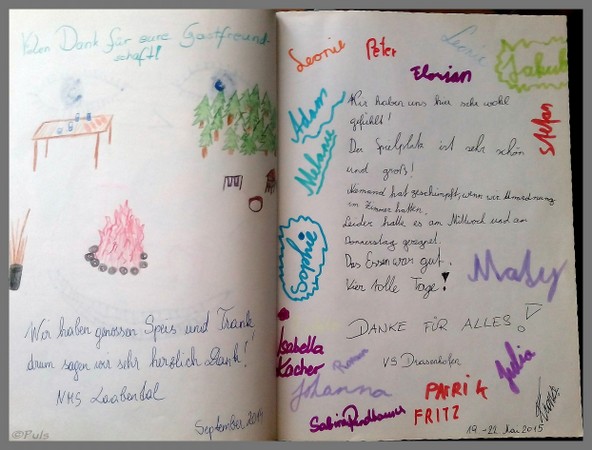 Vielen Dank für eure Gastfreund-
schaft!
Wir haben genossen Speis und Trank,
drum sagen wir sehr herzlich Dank!
NMS Laabental
September 2014
©Puls
Leonie
Peter
Leonie
Florian
Jakob
Adam
Melanie
Stefan
Wir haben uns hier sehr wohl
gefühlt!
Der Spielplatz ist sehr schön
und groß!
Niemand hat geschimpft, wenn wir Unordnung
im Zimmer hatten.
Leider hatte es am Mittwoch und am
Donnerstag geregnet.
Das Essen war gut.
Vier tolle Tage!
Sophie
DANKE FÜR ALLES!
VS Drasenhofen
Isabella
Kacher
Roman
Johanna
Julia
Sabine
PATRIK
FRITZ
19.-22. Mai 2015